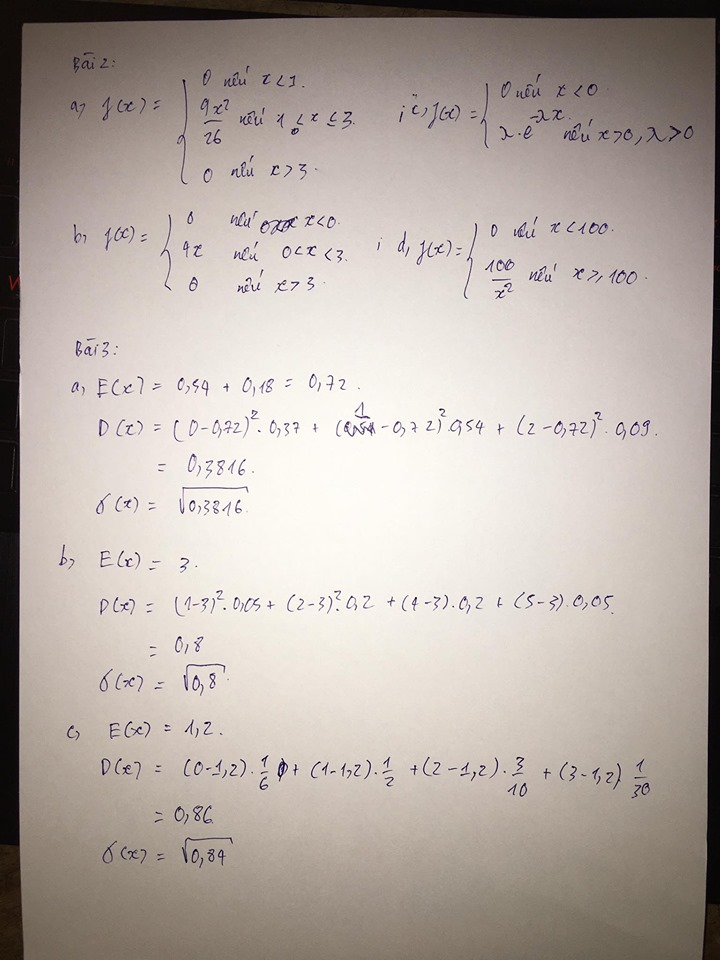 Bài 2:
a, f(x) = { 0 nếu x<1.
9x²/26 nếu 1 ≤ x ≤ 3.
0 nếu x>3.
; c, f(x) = { 0 nếu x<0.
λ.e^-λx. nếu x>0, λ>0
b, f(x) = { 0 nếu x<0.
4x nếu 0<x<3.
0 nếu x>3.
; d, f(x) = { 0 nếu x<100.
100/x² nếu x≥100.
Bài 3:
a, E(x) = 0,54 + 0,18 = 0,72.
D(x) = (0-0,72)².0,37 + (1-0,72)².0,54 + (2-0,72)².0,09.
= 0,3816.
σ(x) = √0,3816.
b, E(x) = 3.
D(x) = (1-3)².0,05 + (2-3)².0,2 + (4-3).0,2 + (5-3).0,05.
= 0,8
σ(x) = √0,8.
c, E(x) = 1,2.
D(x) = (0-1,2).1/6 + (1-1,2).1/2 + (2-1,2).3/10 + (3-1,2).1/30
= 0,86
σ(x) = √0,84